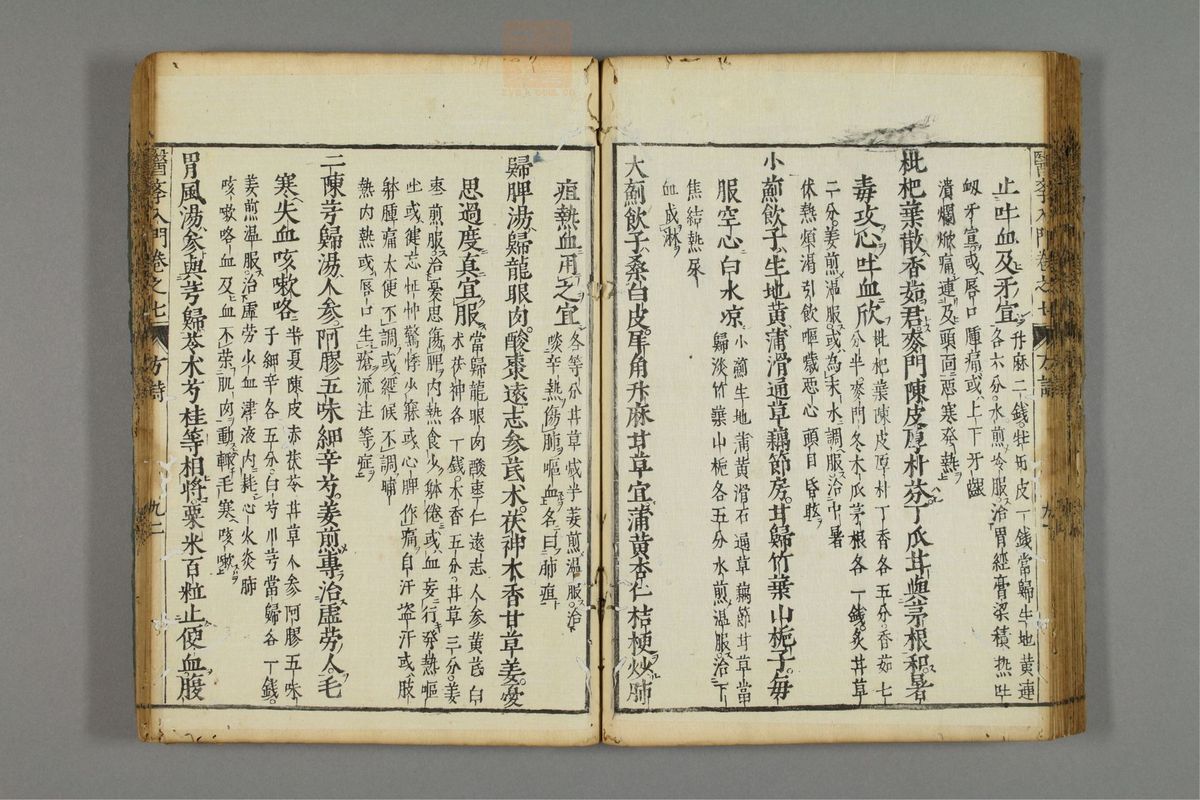 醫孝入門卷之七　方詩　九一
止吐血及牙宣
升麻二錢牡丹皮一錢當歸生地黃連
各六分水煎冷服治胃經膏粱積熱吐
衂牙宣或唇口腫痛或上下牙齦
潰爛焮痛連及頭面惡寒發熱
枇杷葉散香茹君麥門陳皮厚朴芬丁瓜甘與茅根和暑
毒攻心吐血欣
枇杷葉陳皮厚朴丁香各五分香茹七
分半麥門冬木瓜茅根各一錢炙甘草
二分姜煎温服或為末水調服治中暑
伏熱煩渴引飲嘔噦惡心頭目昏眩
小薊飲子生地黃蒲滑通草藕節房甘歸竹葉山梔子每
服空心白水凉
小薊生地蒲黃滑石通草藕節甘草當
歸淡竹葉山梔各五分水煎温服治下
焦結熱尿
血成淋
大薊飲子桑白皮犀角升麻甘草宜蒲黃杏仁桔梗炒肺
疽熱血用之宜
各等分甘草减半姜煎温服治
啖辛熱傷肺嘔血名曰肺疽
歸脾湯歸龍眼肉酸棗遠志參茋朮茯神木香甘草姜憂
思過度真宜服
當歸龍眼肉酸棗仁遠志人參黃茋白
朮茯神各一錢木香五分甘草三分姜
棗煎服治憂思傷脾内熱食少躰倦或血妄行發熱嘔
吐或健忘怔忡驚悸少寐或心脾作痛自汗盗汗或肢
躰腫痛大便不調或經候不調晡
熱内熱或唇口生瘡流注等症
二陳芎歸湯人參阿膠五味細辛芍姜煎專治虛勞人毛
寒失血咳嗽咯
半夏陳皮赤茯苓甘草人參阿膠五味
子細辛各五分白芍川芎當歸各一錢
姜煎温服治虛勞少血津液内耗心火炎肺
咳嗽咯血及血不荣肌肉動輒毛寒咳嗽
胃風湯參與芎歸苓朮芍桂等相將粟米百粒止便血腹
醫孝入門卷之七　方詩　九二